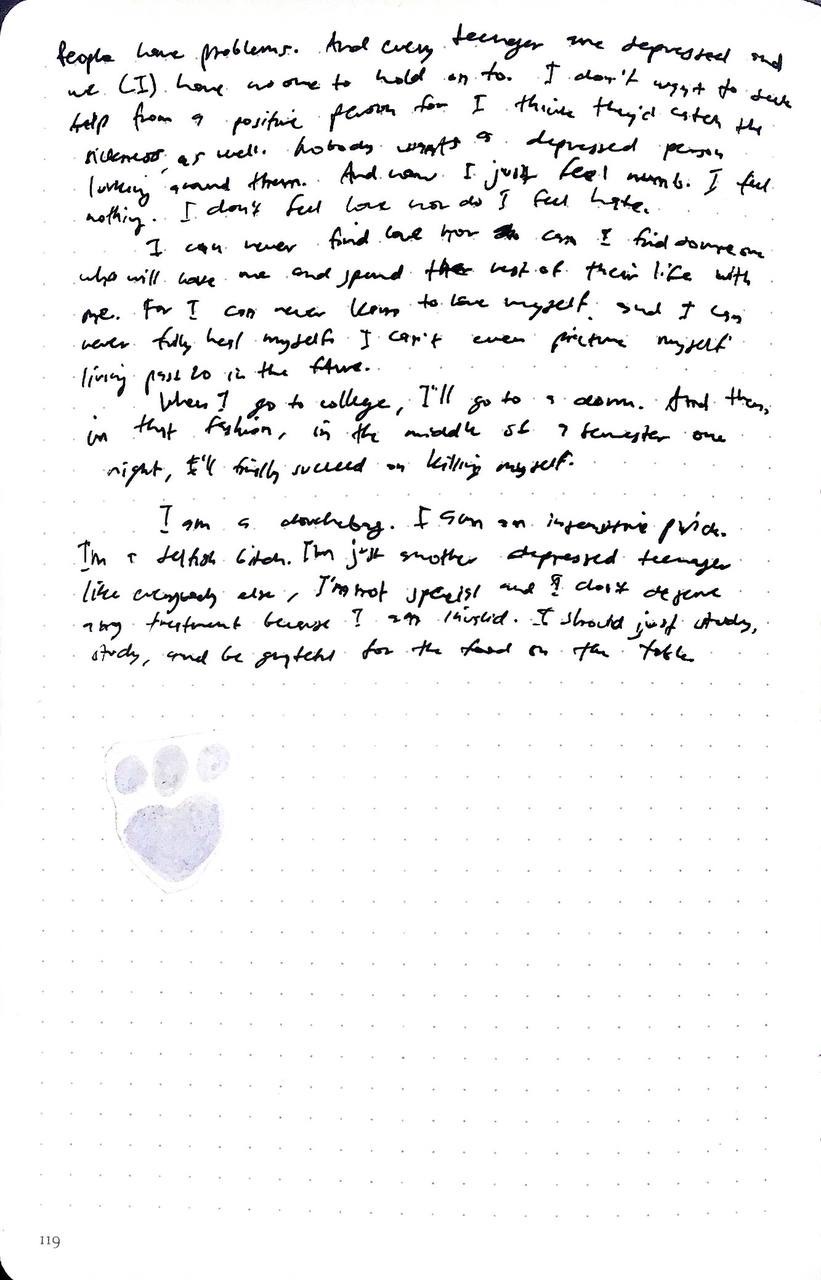 People have problems. And every teenager are depressed and
we (I) have no one to hold on to. I don't want to seek
help from a positive person for I think they'd catch the
sickness as well. Nobody wants a depressed person
lurking around them. And now I just feel numb. I feel
nothing. I don't feel love nor do I feel hate.
I can never find love nor can I find someone
who will love me and spend the rest of their life with
me. For I can never learn to love myself. and I can
never fully heal myself. I can't even picture myself
living past 20 in the future.
When I go to college, I'll go to a dorm. And then,
in that fashion, in the middle of a semester one
night, I'll finally succeed on killing myself.
I am a douchebag. I am an insensitive prick.
I'm a selfish bitch. I'm just another depressed teenager
like everybody else, I'm not special and I don't deserve
any treatment because I am invalid. I should just study,
study, and be grateful for the food on the table
119